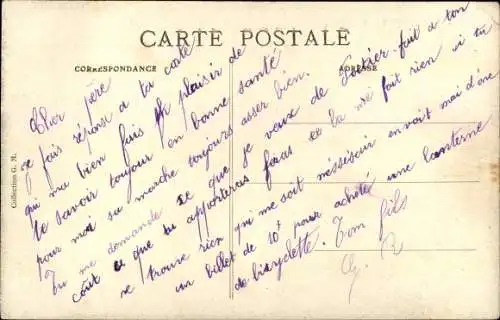 CARTE POSTALE
CORRESPONDANCE
ADRESSE
Collection G. M.
Cher père
Je fais réponse a ta carte
qui ma bien fais plaisir de
te savoir toujour en bonne santé
pour moi sa marche toujours asser bien.
Tu me demande ce que je veux de Poitier fait a ton
cout ce que tu apporteras feras ce la me fait rien si tu
ne trouve rien qui me soit nésséseir envoit moi d'one
un billet de 10f pour acheté une lanterne
de bicyclette. Ton fils
G. R